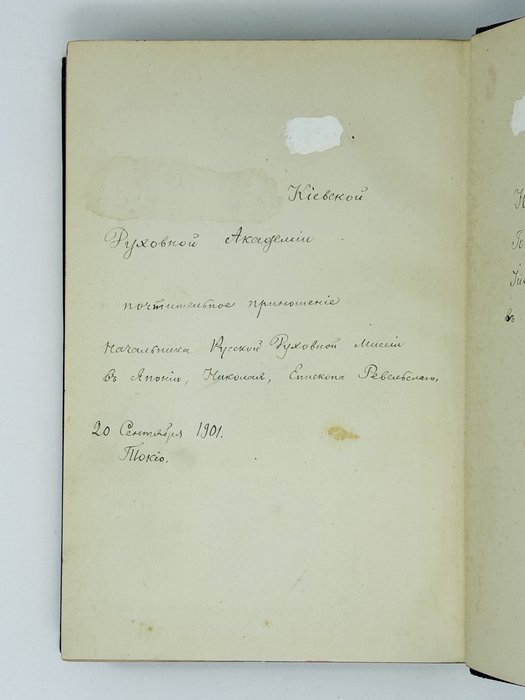 Кіевской
Духовной Академіи
почтительное приношеніе
Начальника Русской Духовной Миссіи
въ Японіи, Николая, Епископа Ревельскаго,
20 Сентября 1901.
Токіо.
въ